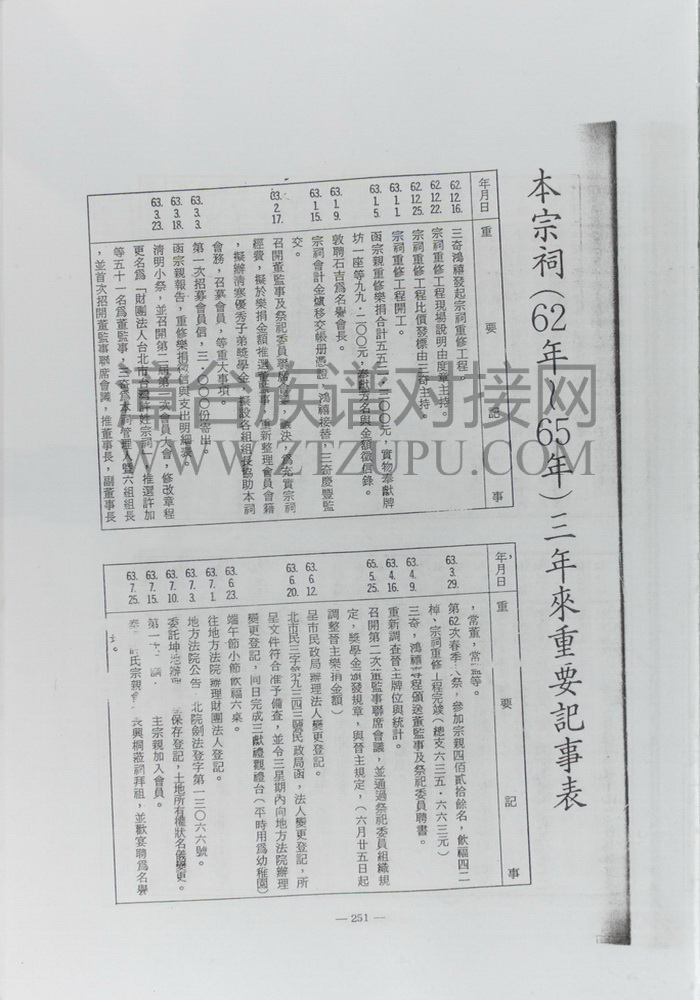 本宗祠(62年~65年)三年來重要記事表
年月日
重要記事
62.12.16.
三奇鴻禧發起宗祠重修工程。
62.12.22.
宗祠重修工程現場說明由度章主持。
62.12.25.
宗祠重修工程比價發標由三奇主持。
63.1.1.
宗祠重修工程開工。
63.1.5.
函宗親重修樂捐合計五五二・二〇〇元,實物奉獻牌
坊一座等九九・二〇〇元,奉獻芳名與金額徵信錄。
63.1.9.
敦聘石吉爲名譽會長。
63.1.15.
宗祠會計金爐移交帳册憑證 鴻禧接替,三奇慶豐監
交。
63.2.17.
召開董監事及祭祀委員聯席會議,議決,爲充實宗祠
經費,擬於樂捐金額推選董監事,重新整理會員會籍
,擬辦清寒優秀子弟獎學金,擬設各組組長協助本祠
會務,召募會員,等重大事項。
63.3.3.
第一次招募會員信,三・〇〇〇份寄出。
63.3.18.
函宗親報告,重修樂捐徵信與支出明細表。
63.3.23.
清明小祭,並召開第二屆第二次會員大會,修改章程
更名爲「財團法人台北市台灣許姓宗祠」,推選許加
等五十一名爲董監事,三奇爲本祠管理人暨六組組長
,並首次招開董監事聯席會議,推董事長,副董事長
年月日
重要記事
,常董,常監等。
63.3.29.
第62次春季 祭,參加宗親四佰貳拾餘名,飲福四二
棹,宗祠重修工程完竣(總支六三五・六六三元)
63.4.9.
三奇,鴻禧專程頒送董監事及祭祀委員聘書。
63.4.16.
重新調查晉主牌位與統計。
65.5.25.
召開第二次董監事聯席會議,並通過祭祀委員組織規
定,獎學金頒發規章,與晉主規定,(六月廿五日起
調整晉主樂捐金額)
63.6.12.
呈市民政局辦理法人變更登記。
63.6.20.
北市民三字第九三四三號民政局函,法人變更登記,所
呈文件符合准予備查,並令三星期內向地方法院辦理
變更登記,同日完成三獻禮觀禮台(平時用爲幼稚園)
63.6.23.
端午節小節飲福六桌。
63.7.1.
往地方法院辦理財團法人登記。
63.7.3.
地方法院公告,北院劍法登字第一三〇六六號。
63.7.10.
委託坤地辦理 保存登記,土地所有權狀名儀變更。
63.7.15.
第一次 主宗親加入會員。
63.7.25.
氏宗親會 長興桐蒞祠拜祖,並歡宴聘爲名譽
— 251 —
尋谷族谱对接网
WWW.ZTZUPU.COM